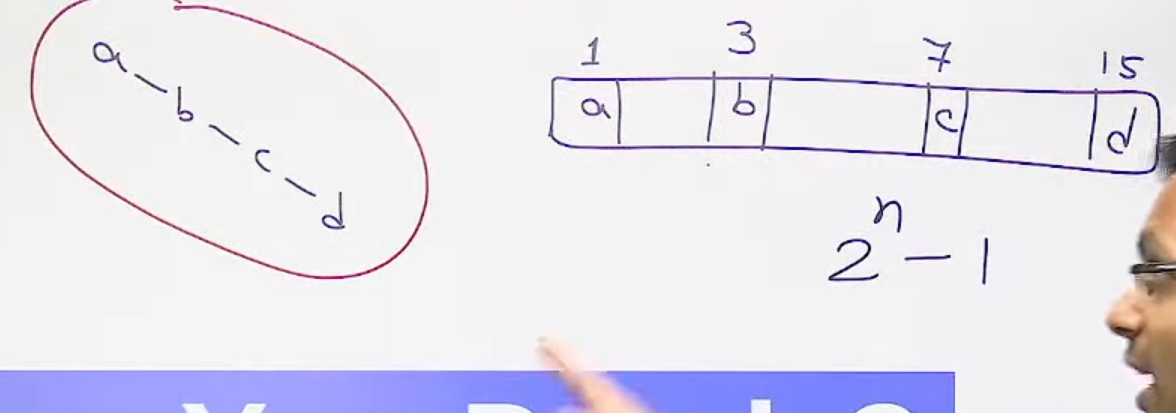 a
b
c
d
1 3 7 15
a b c d
2ⁿ - 1